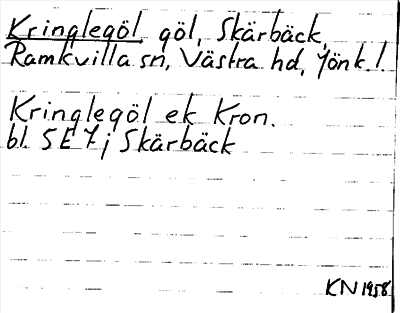 Kringlegöl göl, Skärbäck,
Ramkvilla sn, Västra hd, Jönk. l.
Kringlegöl ek Kron.
bl. 5 E 7 j Skärbäck
KN 1958